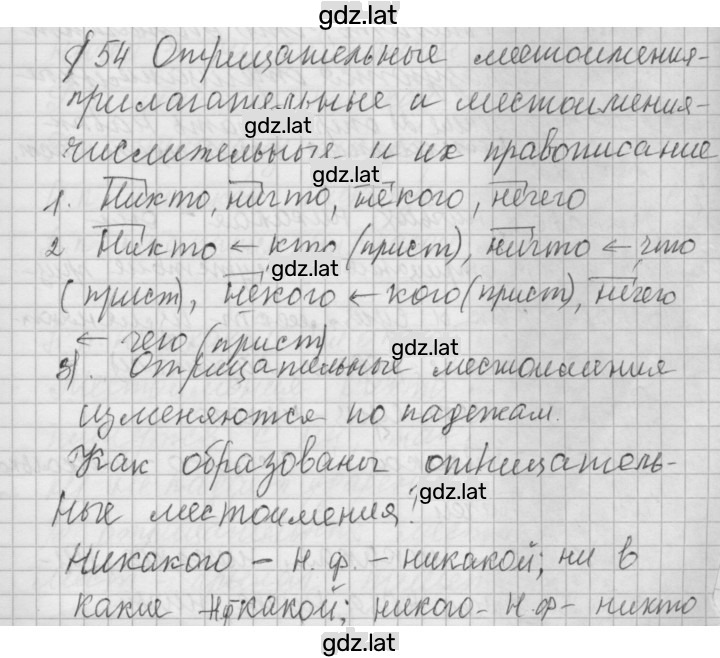 gdz.lat
§ 54 Отрицательные местоимения-
прилагательные и местоимения-
gdz.lat
числительные и их правописание
gdz.lat
1. Никто, ничто, не́кого, не́чего
2 Никто ← кто (прист), ничто ← что
gdz.lat
(прист), не́кого ← кого (прист), не́чего
← чего (прист)
gdz.lat
3). Отрицательные местоимения
изменяются по падежам.
Как образованы отрицатель-
gdz.lat
ные местоимения?
Никакого - н. ф. - никакой; ни в
какие нф какой; никого - н. ф - никто
gdz.lat